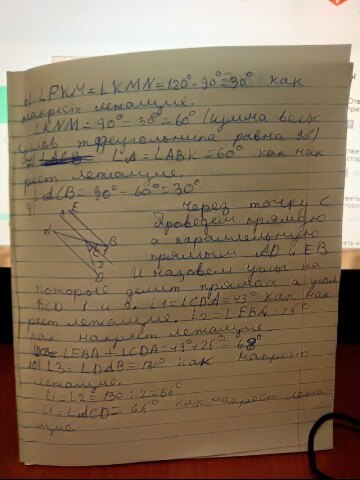 б) ∠PKM = ∠KMN = 120° - 90° = 30° как
накрест лежащие.
∠KNM = 90° - 30° = 60° (сумма всех
углов треугольника равна 90°)
∠A = ∠ABK = 60° как нак
рест лежащие.
∠ACB = 90° - 60° = 30°
Через точку C
проведем прямую
a параллельную
прямым AD и EB
И назовем углы на
которые делит прямая a угол
BCD 1 и 2. ∠1 = ∠CDA = 43° как нак
рест лежащие. ∠2 = ∠EBA = 25°
как накрест лежащие
= ∠EBA + ∠CDA = 43° + 25° = 68°
10) ∠3 = ∠DAB = 130° как накрест
лежащие.
∠1 = ∠2 = 130 : 2 = 65°
∠1 = ∠ACD = 65° как накрест лежа
щие